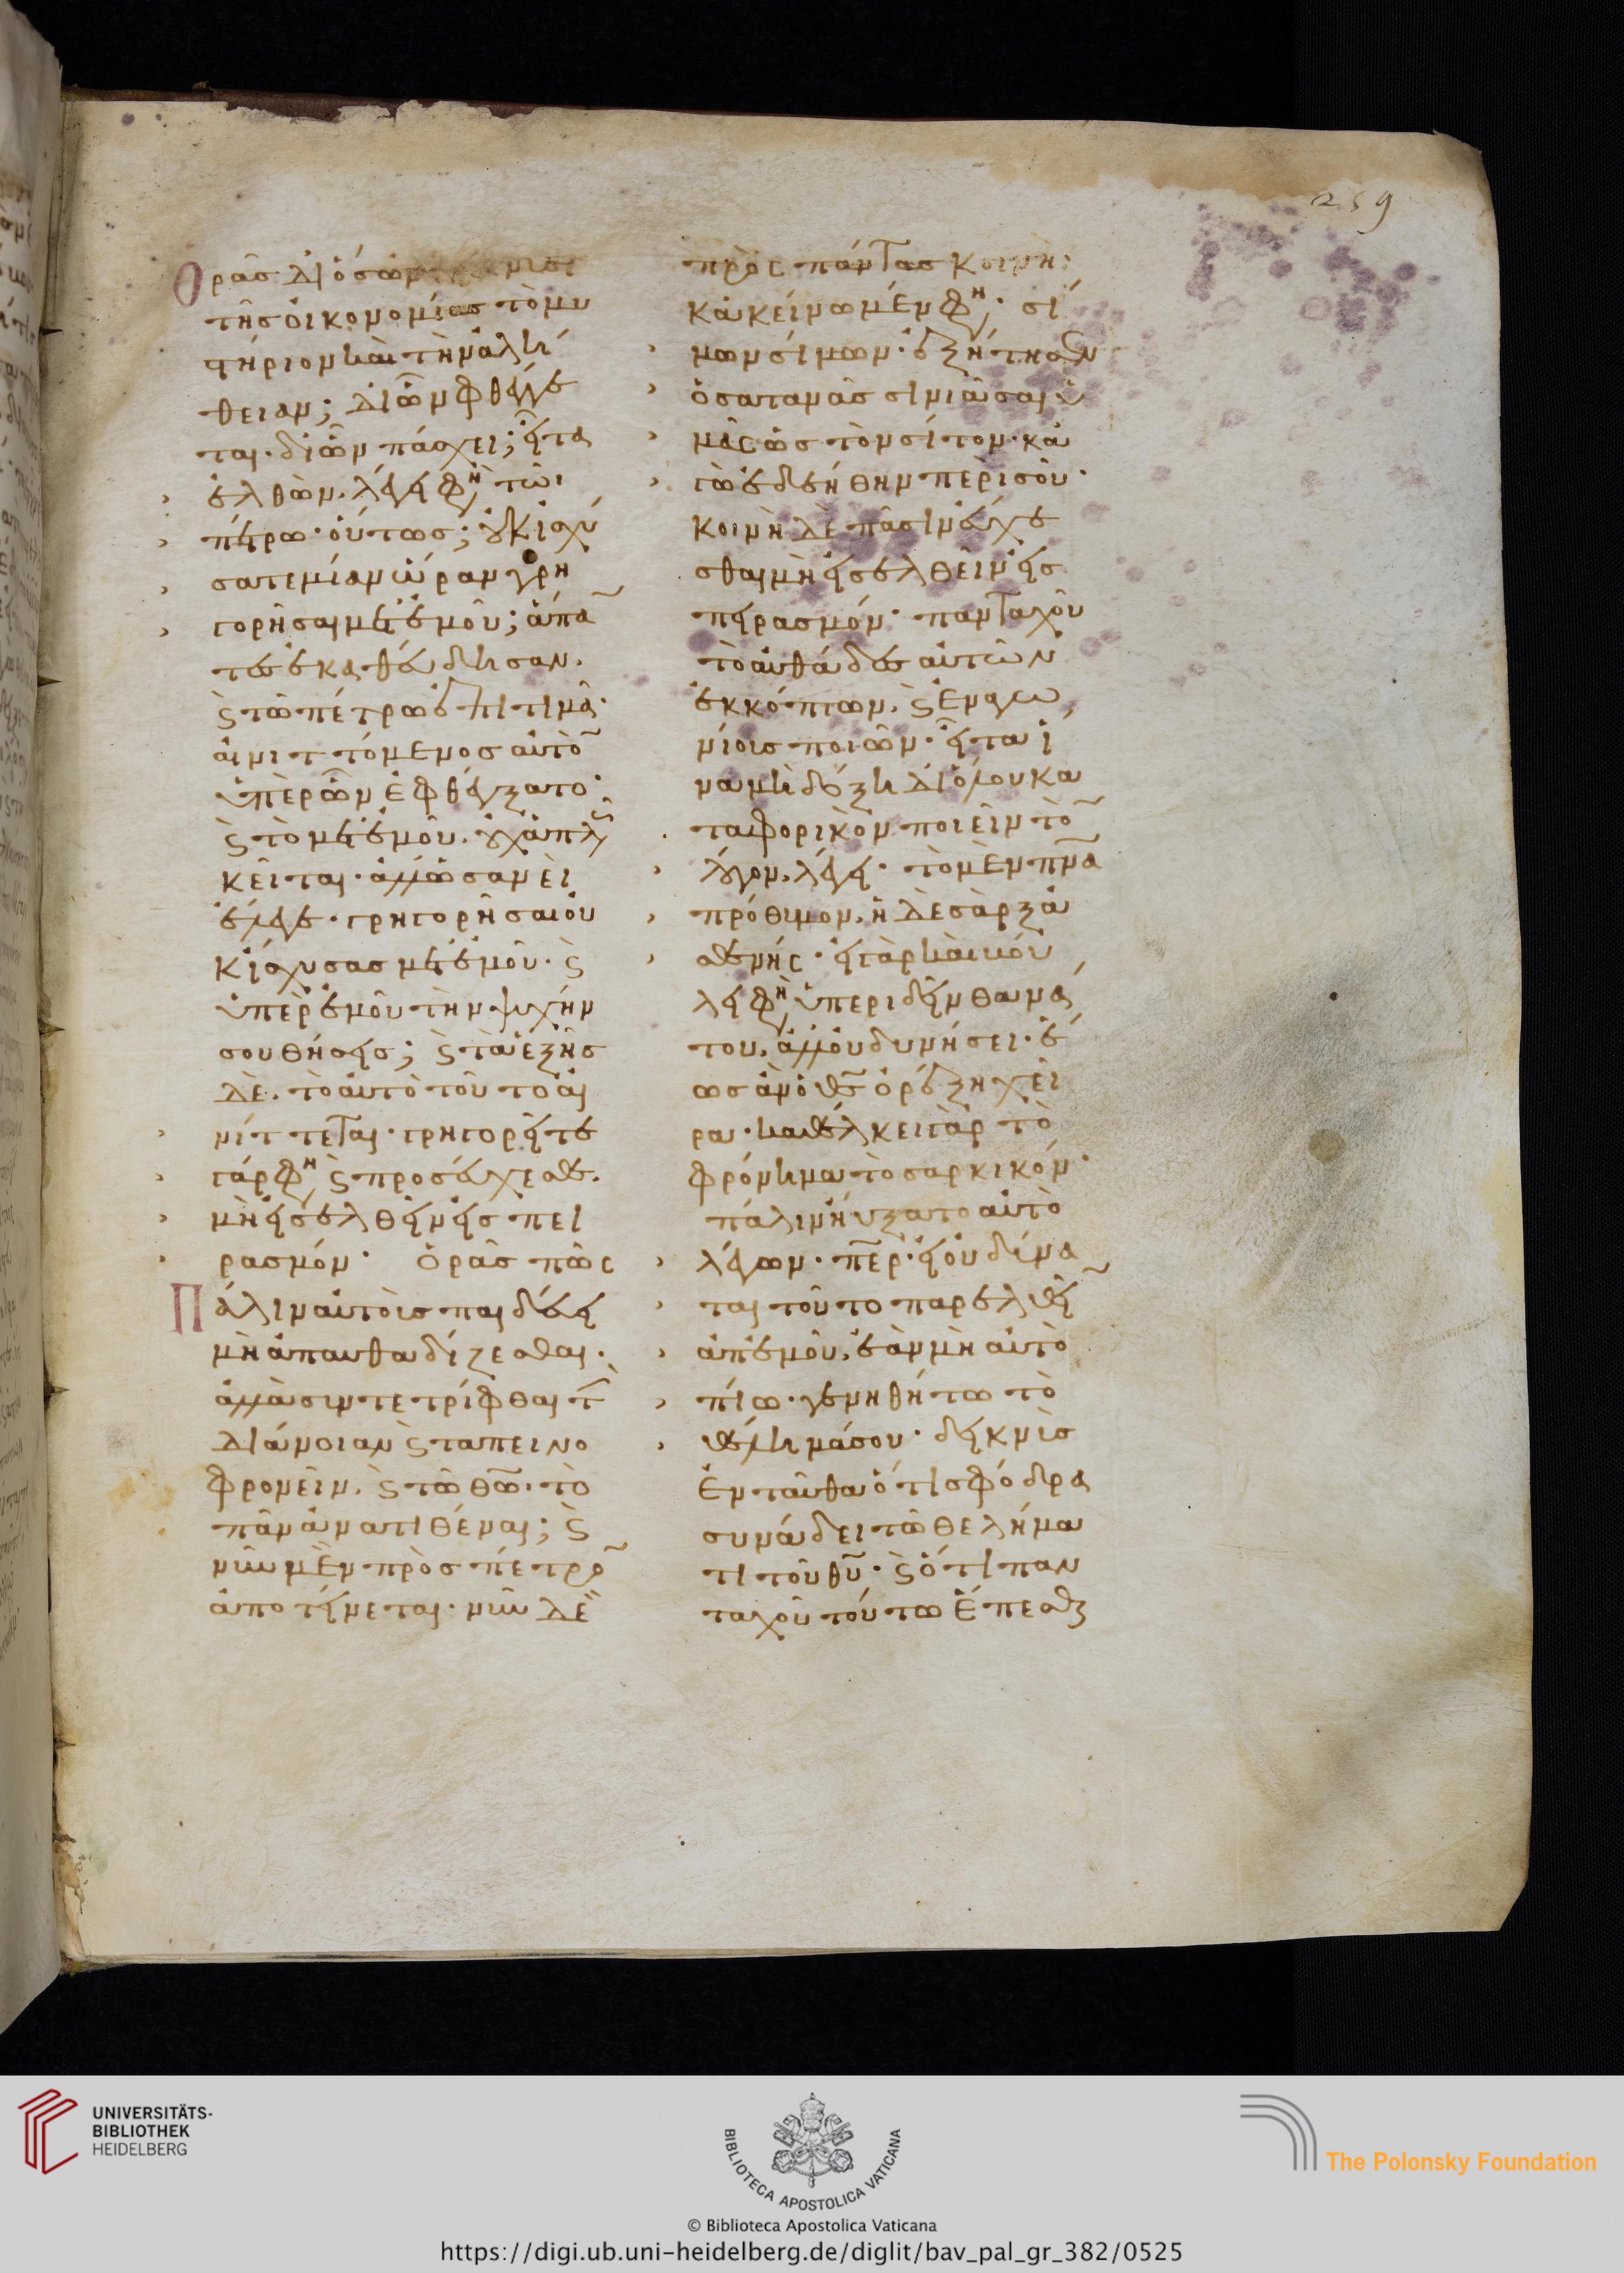 259
ορᾶσ δι ὅσων
τῆσ οἰκονομίασ τὸ μυ
στήριον καὶ τὴν ἀλή
θειαν; δι ὧν φθέγγε
ται· δι ὧν πάσχει; εἶτα
ἐλθὼν, λέγει φη τῶι
πέτρω· οὕτωσ; οὐκ ἰσχύ
σατε μίαν ὥραν γρη
γορῆσαι μετ ἐμοῦ; ἅπα̅
τεσ ἐκάθευδησαν.
ϛ τῶ πέτρω ἐπιτιμᾶ·
αἰνιττόμενοσ αὐτὸ̅
ὑπὲρ ὧν ἐφθέγξατο·
ϛ τὸ μετ ἐμοῦ. οὐχ ἁπλῶσ
κεῖται· ἀλλ ὡσανεὶ
ἔλεγε· γρηγορῆσαι οὐ
κ ἴσχυσασ μετ ἐμοῦ· ϛ
ὑπὲρ ἐμοῦ τὴν ψυχήν
σου θήσεισ; ϛ τὰ ἑξῆσ
δὲ. τὸ αὐτὸ τοῦτο αἰ
νίττεται· γρηγορεῖτε
γάρ φη ϛ προσεύχεσθε.
μὴ εἰσέλθειν εἰσ πει
ρασμόν· ὁρᾶσ πῶσ
πάλιν αὐτοὺσ παιδεύει
μὴ ἀπαυθαδίζεσθαι.
ἀλλὰ συντετρίφθαι τὴν
διάνοιαν ϛ ταπεινο
φρονεῖν. ϛ τῶ θω̅. τὸ
πᾶν ἀνατιθέναι; ϛ
νῦν μὲν πρὸσ πέτρο̅
ἀποτείνεται· νῦν δὲ
πρὸσ πάντασ κοινῆ:
κἀκείνω μέν φη· σί
μων σίμων· ἐξήτησεν
ὁ σατανᾶσ σινιᾶσαι ὑ
μᾶσ ὡσ τὸν σίτον· κἀ
γὼ ἐδεήθην περὶ σοῦ·
κοινῆ δὲ πᾶσιν εὔχε
σθαι μὴ εἰσελθεῖν εἰσ
πειρασμόν· πανταχοῦ
τὸ αὔθαδεσ αὐτῶν
ἐκκόπτων. ϛ ἐναγω
νίουσ ποιῶν· εἶτα ἵ
να μὴ δόξη δι ὅλου κα
ταφορικὸν ποιεῖν τὸ̅
λόγον. λέγει· τὸ μὲν πν̅α
πρόθυμον. ἡ δὲ σὰρξ ἀ
σθενήσ· εἰ γὰρ καὶ σύ
φη ὑπεριδεῖν θανά
του. ἀλλ οὐ δυνήσει· ἕ
ωσ ἂν ὁ θσ̅ ὀρέξη χεῖ
ρα· καθέλκει γὰρ τὸ
φρόνημα τὸ σαρκικόν·
πάλιν ηὔξατο αὐτὸ
λέγων· πε̅ρ· εἰ οὐ δύνα
ται τοῦτο παρελθεῖ̅
ἀπ ἐμοῦ, ἐὰν μὴ αὐτὸ
πίω· γενηθήτω τὸ
θέλημά σου· δεικνὺσ
ἐνταῦθα ὅτι σφόδρα
συνάδει τῶ θελήμα
τι τοῦ θυ̅· ϛ ὅτι παν
ταχοῦ τούτω ἕπεσθαι
UNIVERSITÄTS-
BIBLIOTHEK
HEIDELBERG
BIBLIOTECA APOSTOLICA VATICANA
The Polonsky Foundation
© Biblioteca Apostolica Vaticana
https://digi.ub.uni-heidelberg.de/diglit/bav_pal_gr_382/0525